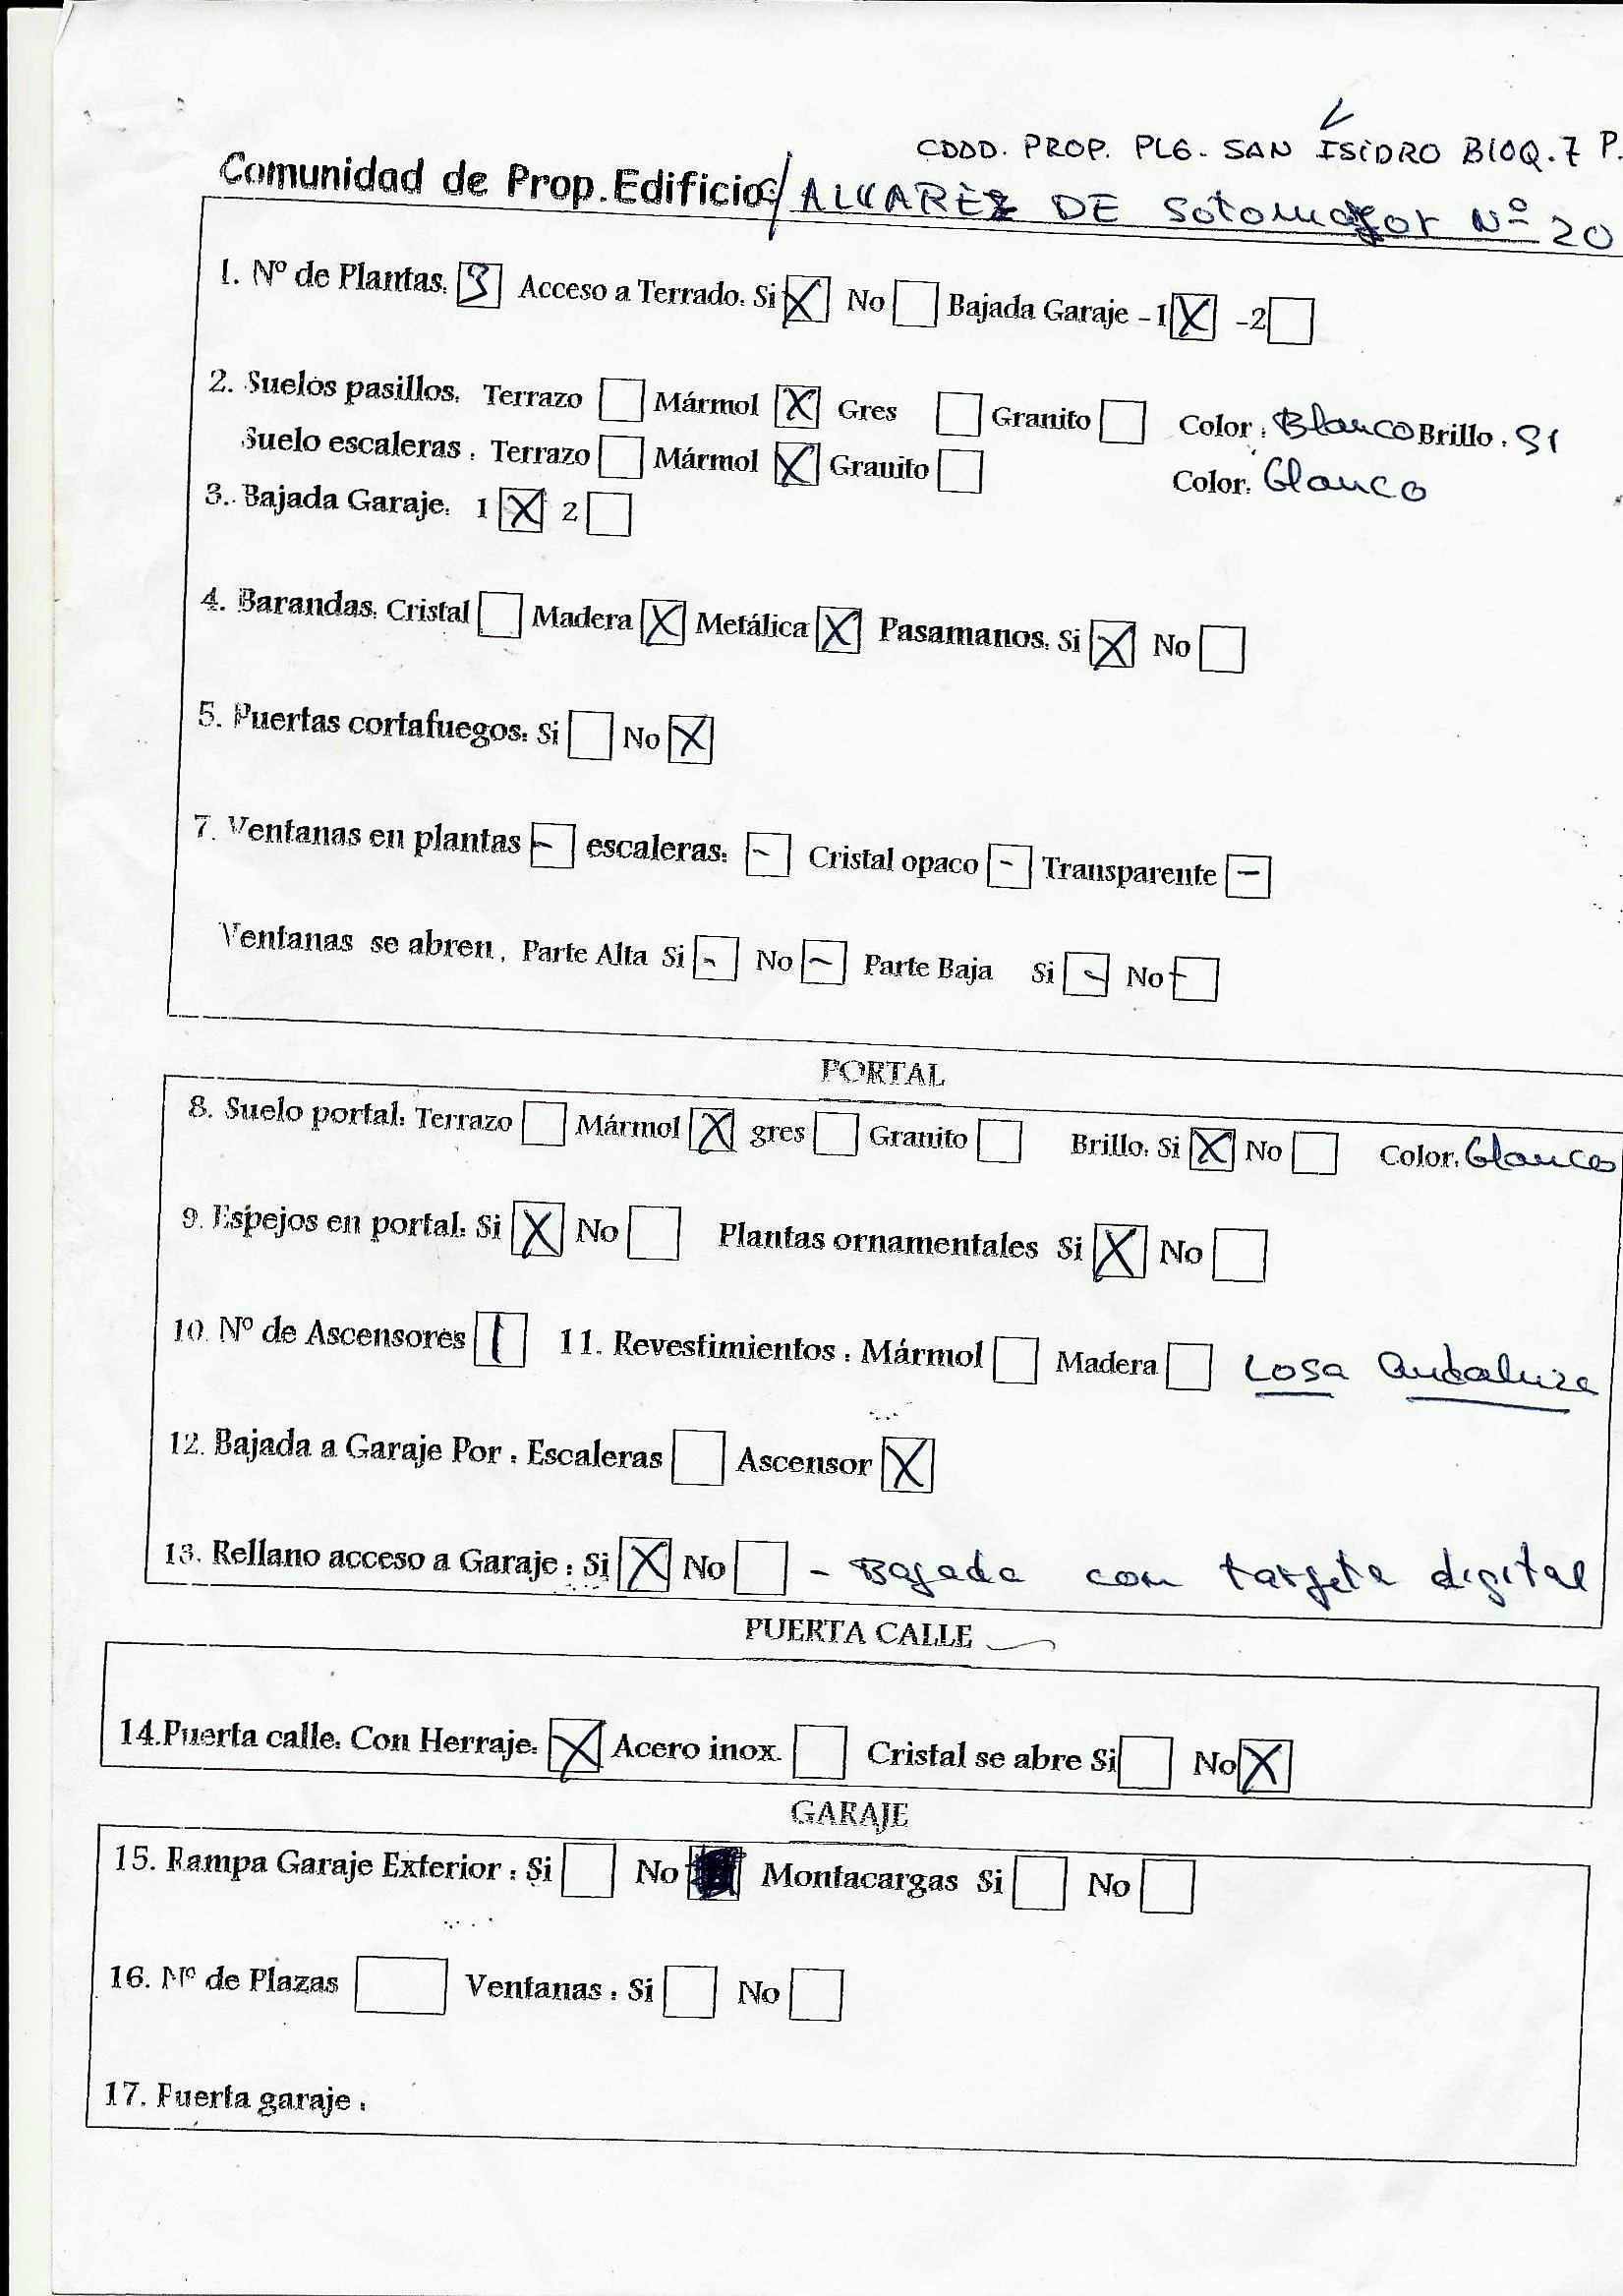 CDDD. PROP. PLG. SAN ISIDRO BLOQ. 7 P.
Comunidad de Prop. Edificio: C/ ALVAREZ DE Sotomayor Nº 20
1. Nº de Plantas: 3 Acceso a Terrado: Si X No Bajada Garaje -1 X -2
2. Suelos pasillos: Terrazo Mármol X Gres Granito Color: Blanco Brillo: SI
Suelo escaleras: Terrazo Mármol X Granito Color: blanco
3. Bajada Garaje: 1 X 2
4. Barandas: Cristal Madera X Metálica X Pasamanos: Si X No
5. Puertas cortafuegos: Si No X
7. Ventanas en plantas - escaleras: - Cristal opaco - Transparente -
Ventanas se abren, Parte Alta Si - No - Parte Baja Si - No -
PORTAL
8. Suelo portal: Terrazo Mármol X gres Granito Brillo: Si X No Color: blanco
9. Espejos en portal: Si X No Plantas ornamentales Si X No
10. Nº de Ascensores 1 11. Revestimientos: Mármol Madera Losa andaluza
12. Bajada a Garaje Por: Escaleras Ascensor X
13. Rellano acceso a Garaje: Si X No - Bajada con targeta digital
PUERTA CALLE
14.Puerta calle: Con Herraje: X Acero inox. Cristal se abre Si No X
GARAJE
15. Rampa Garaje Exterior: Si No Montacargas Si No
16. Nº de Plazas Ventanas: Si No
17. Puerta garaje: